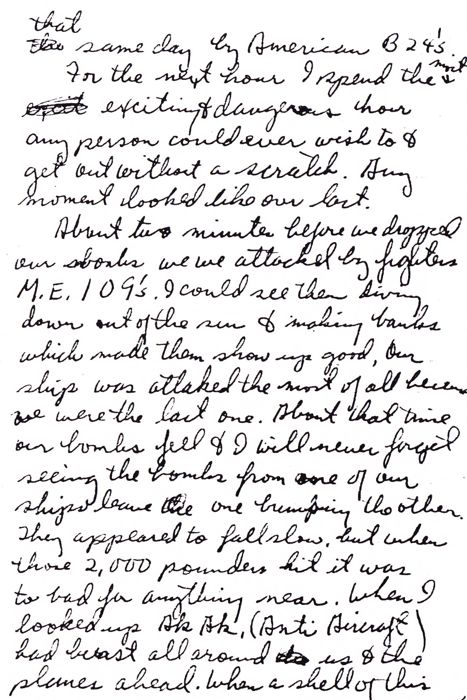 that
the same day by American B 24's.
For the next hour I spend the most
excit exciting & dangerous hour
any person could ever wish to &
get out without a scratch. Any
moment looked like our last.
About two minutes before we dropped
our bombs we we attacked by fighters
M.E. 109's. I could see them diving
down out of the sun & making banks
which made them show up good, Our
ship was attaked the most of all because
we were the last one. About that time
our bombs fell & I will never forget
seeing the bombs from one of our
ships leave the one bumping the other.
They appeared to fall slow, but when
those 2,000 pounders hit it was
to bad for anything near. When I
looked up Ak Ak, (Anti Aircraft)
had burst all around us & the
planes ahead. When a shell of this